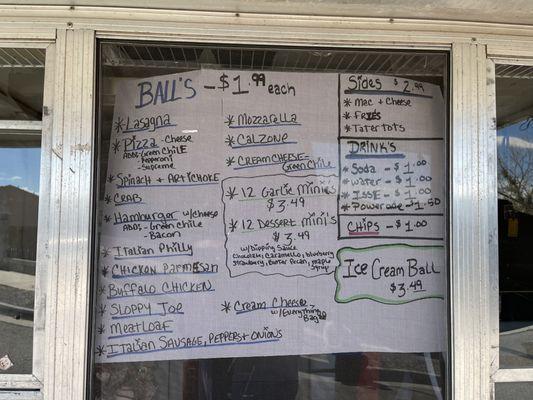 BALL'S - $1.99 each
* Lasagna
* Pizza - Cheese
ADDS - Green Chile
- Pepperoni
- Supreme
* Spinach + ARTICHOKE
* CRAB
* Hamburger w/cheese
ADDS - Green Chile
- Bacon
* Italian Philly
* CHICKEN PARMESAN
* BUFFALO CHICKEN
* SLOPPY JOE
* MEATLOAF
* ITALIAN SAUSAGE, PEPPERS + ONIONS
* MOZZARELLA
* CALZONE
* CREAM CHEESE -
GREEN CHILE
* 12 GARLIC MINI'S
$3.49
* 12 DESSERT MINI'S
$3.49
W/ Dipping Sauce
Chocolate, Caramello, blueberry
strawberry, Butter Pecan, maple
syrup
* CREAM CHEESE -
W/ EVERYTHING
BAGEL
Sides $2.99
* MAC + CHEESE
* FRIES
* TaterTOTS
DRINK'S
* Soda - $1.00
* water - $1.00
* - $1.00
* Powerade - $1.50
CHIPS - $1.00
ICE CREAM BALL
$3.49